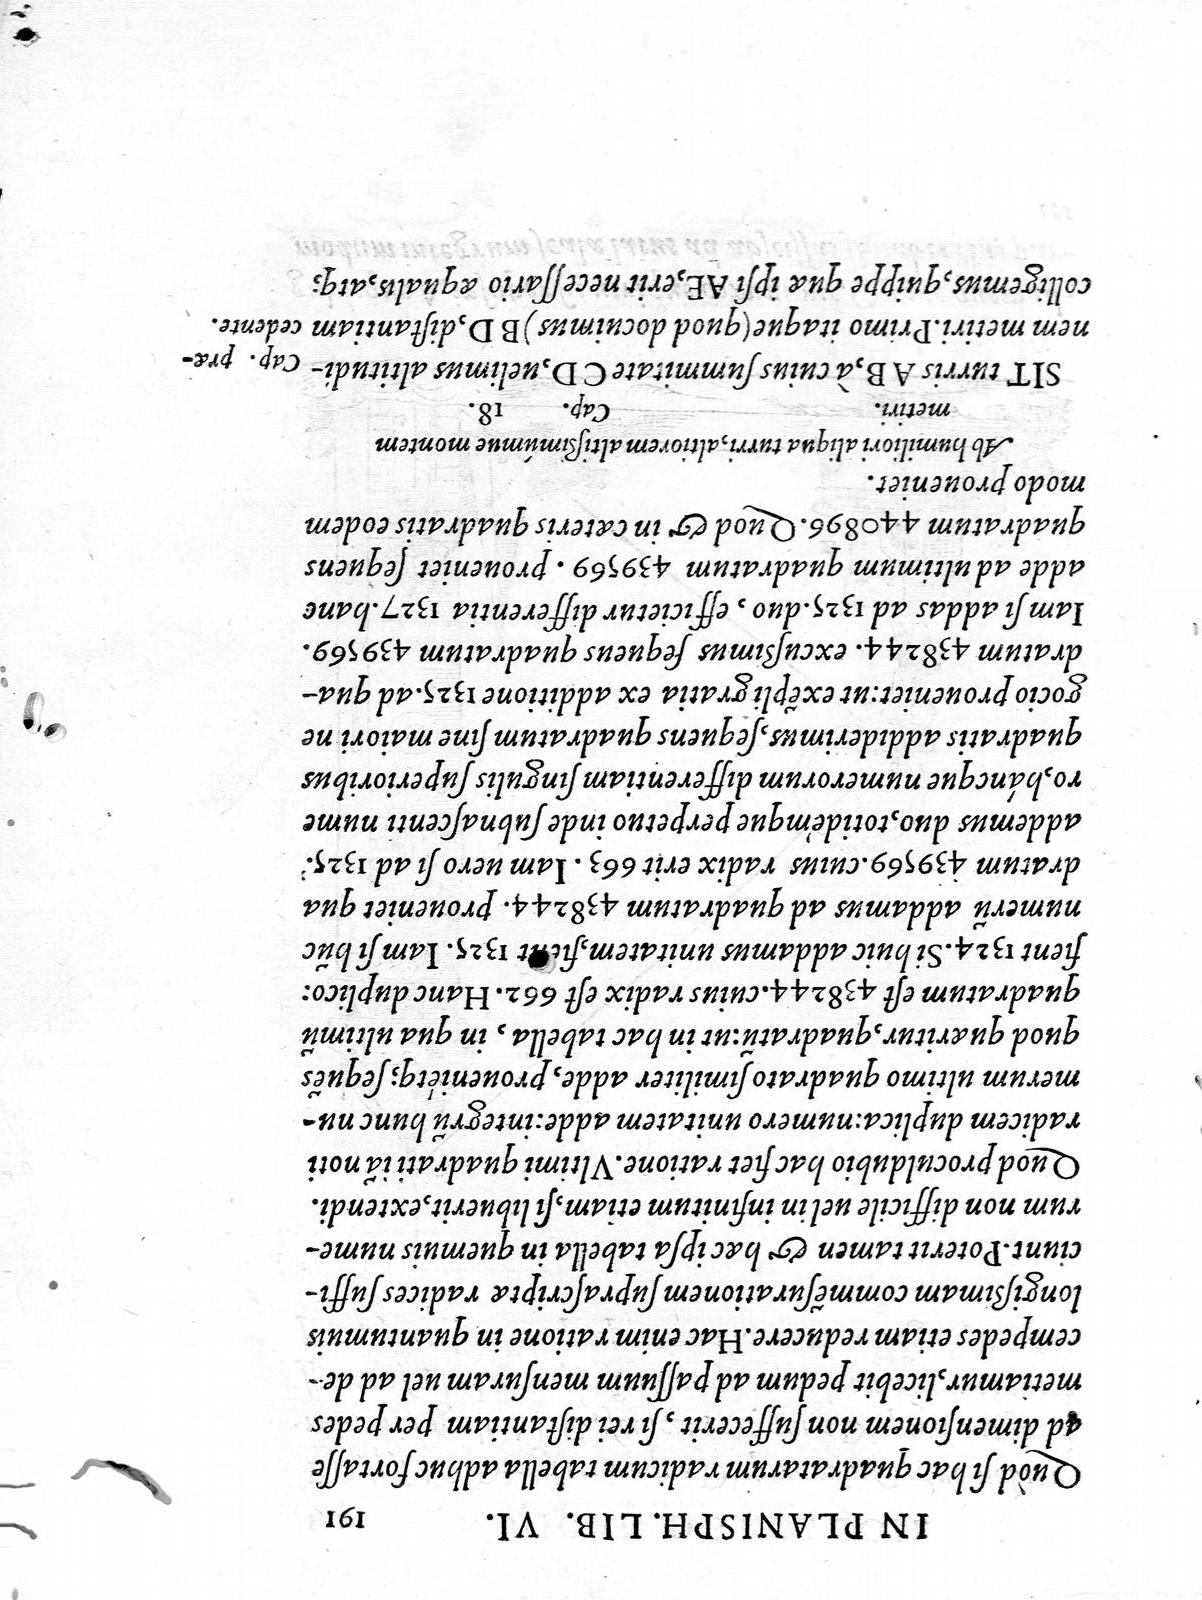 IN PLANISPH. LIB. VI. 191
Quòd si hac quadratarum radicum tabella adhuc fortasse
ad dimensionem non suffecerit, si rei distantiam per pedes
metiamur, licebit pedum ad passuum mensuram uel ad de-
cempedes etiam reducere. Hac enim ratione in quantumuis
longissimam commẽsurationem suprascriptæ radices suffi-
ciunt. Poterit tamen & hæc ipsa tabella in quemuis nume-
rum non difficile uel in infinitum etiam, si libuerit, extendi.
Quod proculdubio hac fiet ratione. Vltimi quadrati iã noti
radicem duplica: numero unitatem adde: integrũ hunc nu-
merum ultimo quadrato similiter adde, prouenietq; sequẽs
quod quæritur, quadratũ: ut in hac tabella, in qua ultimũ
quadratum est 438244. cuius radix est 662. Hanc duplico:
fient 1324. Si huic addamus unitatem, fient 1325. Iam si hũc
numerũ addamus ad quadratum 438244. proueniet qua
dratum 439569. cuius radix erit 663. Iam uero si ad 1325.
addemus duo, totidèmque perpetuo inde subnascenti nume
ro, hancque numerorum differentiam singulis superioribus
quadratis addiderimus, sequens quadratum sine maiori ne
gocio proueniet: ut exẽpli gratia ex additione 1325. ad qua-
dratum 438244. excusimus sequens quadratum 439569.
Iam si addas ad 1325. duo, efficietur differentia 1327. hanc
adde ad ultimum quadratum 439569. proueniet sequens
quadratum 440896. Quod & in cæteris quadratis eodem
modo proueniet.
Ab humiliori aliqua turri, altiorem altissimúmue montem
metiri. Cap. 18.
SIT turris AB, à cuius summitate CD, uelimus altitudi- Cap. præ-
nem metiri. Primo itaque (quod docuimus) BD, distantiam cedente.
colligemus, quippe quæ ipsi AE, erit necessario æqualis, atq;